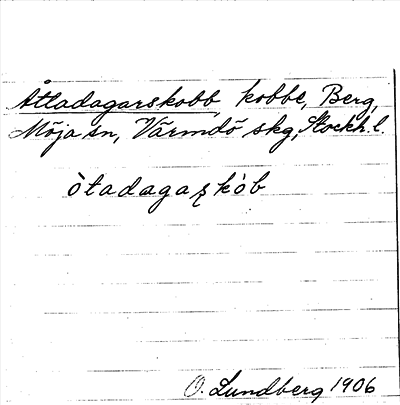 Åttadagarskobb, kobbe, Berg,
Möja sn, Värmdö skg, Stockh. l.
òtadagaʂkòb
O. Lundberg 1906